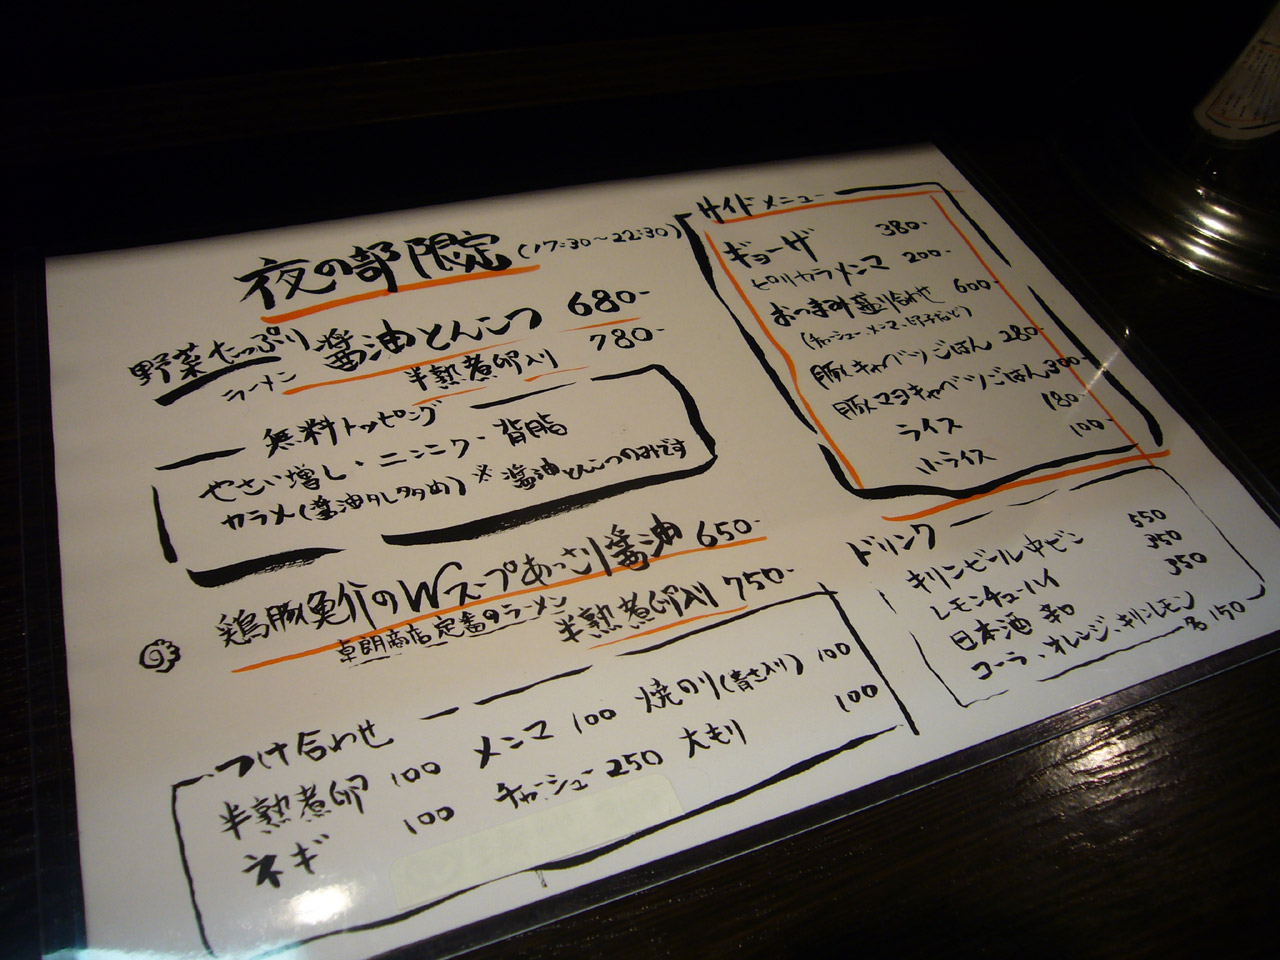 夜の部限定 (17:30～22:30)
野菜たっぷり 醤油とんこつ 680-
ラーメン 半熟煮卵入り 780-
無料トッピング
やさい増し・ニンニク・背脂
カラメ(醤油タレ多め) ※醤油とんこつのみです
鶏豚魚介のWスープあっさり醤油 650-
卓朗商店定番のラーメン 半熟煮卵入り 750-
つけ合わせ
半熟煮卵 100 メンマ 100 焼のり(青さ入り) 100
ネギ 100 チャーシュー 250 大もり 100
サイドメニュー
ギョーザ 380-
ピリカラメンマ 200-
おつまみ盛り合わせ 600-
(チャーシュー・メンマ・玉子など)
豚キャベツごはん 280-
豚マヨキャベツごはん 300-
ライス 180-
小ライス 100-
ドリンク
キリンビール中ビン 550
レモンチューハイ 350
日本酒 辛口 350
コーラ、オレンジ、キリンレモン
各150-